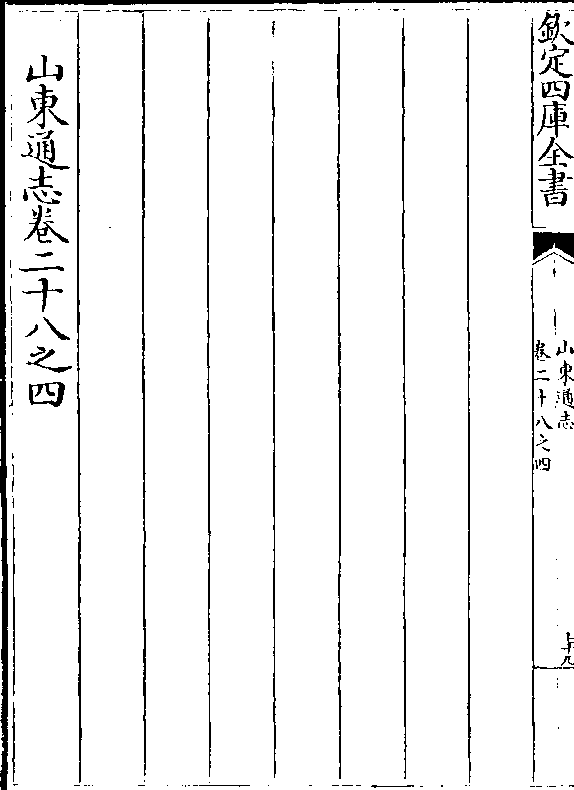 欽定四庫全書
山東通志
卷二十八之四
山東通志卷二十八之四